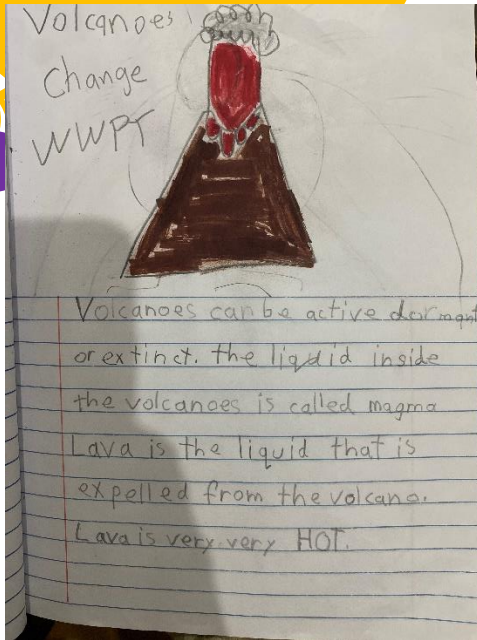 Volcanoes
Change
WWPT
Volcanoes can be active dormant
or extinct. the liquid inside
the volcanoes is called magma
Lava is the liquid that is
expelled from the volcano.
Lava is very very HOT.